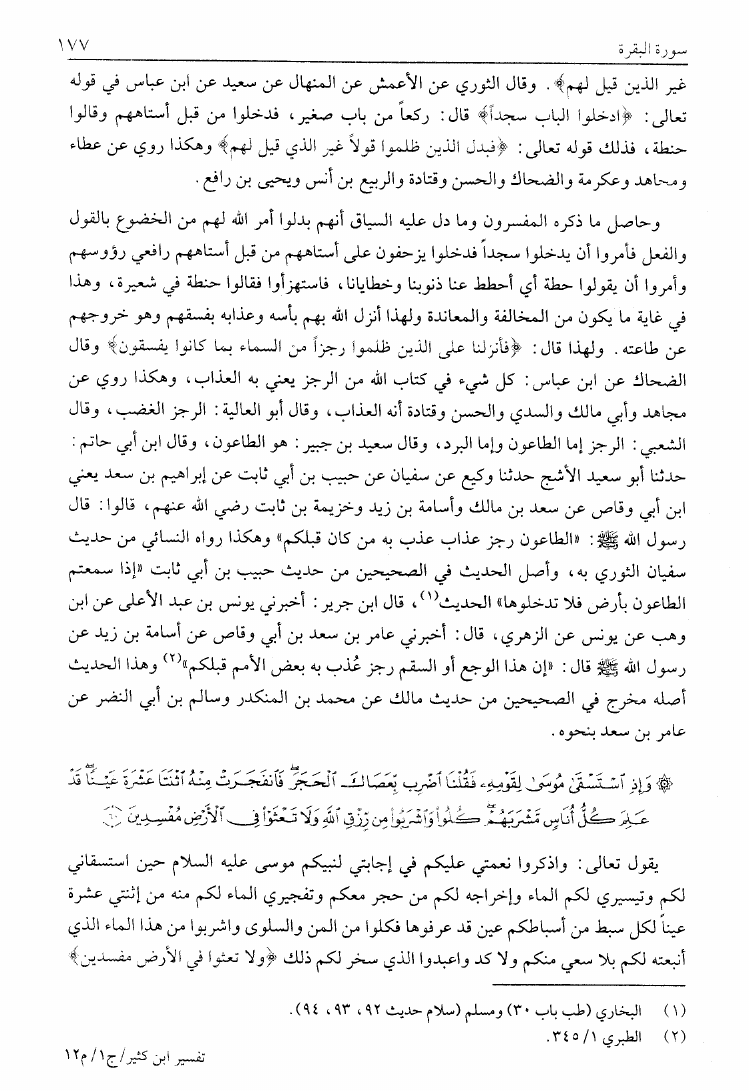 سورة البقرة ١٧٧
غير الذين قيل لهم﴾. وقال الثوري عن الأعمش عن المنهال عن سعيد عن ابن عباس في قوله
تعالى: ﴿ادخلوا الباب سجداً﴾ قال: ركعاً من باب صغير، فدخلوا من قبل أستاههم وقالوا
حنطة، فذلك قوله تعالى: ﴿فبدل الذين ظلموا قولاً غير الذي قيل لهم﴾ وهكذا روي عن عطاء
ومجاهد وعكرمة والضحاك والحسن وقتادة والربيع بن أنس ويحيى بن رافع.
وحاصل ما ذكره المفسرون وما دل عليه السياق أنهم بدلوا أمر الله لهم من الخضوع بالقول
والفعل فأمروا أن يدخلوا سجداً فدخلوا يزحفون على أستاههم من قبل أستاههم رافعي رؤوسهم
وأمروا أن يقولوا حطة أي أحطط عنا ذنوبنا وخطايانا، فاستهزأوا فقالوا حنطة في شعيرة، وهذا
في غاية ما يكون من المخالفة والمعاندة ولهذا أنزل الله بهم بأسه وعذابه بفسقهم وهو خروجهم
عن طاعته. ولهذا قال: ﴿فأنزلنا على الذين ظلموا رجزاً من السماء بما كانوا يفسقون﴾ وقال
الضحاك عن ابن عباس: كل شيء في كتاب الله من الرجز يعني به العذاب، وهكذا روي عن
مجاهد وأبي مالك والسدي والحسن وقتادة أنه العذاب، وقال أبو العالية: الرجز الغضب، وقال
الشعبي: الرجز إما الطاعون وإما البرد، وقال سعيد بن جبير: هو الطاعون، وقال ابن أبي حاتم:
حدثنا أبو سعيد الأشج حدثنا وكيع عن سفيان عن حبيب بن أبي ثابت عن إبراهيم بن سعد يعني
ابن أبي وقاص عن سعد بن مالك وأسامة بن زيد وخزيمة بن ثابت رضي الله عنهم، قالوا: قال
رسول الله ﷺ: «الطاعون رجز عذاب عذب به من كان قبلكم» وهكذا رواه النسائي من حديث
سفيان الثوري به، وأصل الحديث في الصحيحين من حديث حبيب بن أبي ثابت «إذا سمعتم
الطاعون بأرض فلا تدخلوها» الحديث(١)، قال ابن جرير: أخبرني يونس بن عبد الأعلى عن ابن
وهب عن يونس عن الزهري، قال: أخبرني عامر بن سعد بن أبي وقاص عن أسامة بن زيد عن
رسول الله ﷺ قال: «إن هذا الوجع أو السقم رجز عُذب به بعض الأمم قبلكم»(٢) وهذا الحديث
أصله مخرج في الصحيحين من حديث مالك عن محمد بن المنكدر وسالم بن أبي النضر عن
عامر بن سعد بنحوه.
۞ وَإِذِ ٱسْتَسْقَىٰ مُوسَىٰ لِقَوْمِهِۦ فَقُلْنَا ٱضْرِب بِّعَصَاكَ ٱلْحَجَرَ ۖ فَٱنفَجَرَتْ مِنْهُ ٱثْنَتَا عَشْرَةَ عَيْنًا ۖ قَدْ
عَلِمَ كُلُّ أُنَاسٍ مَّشْرَبَهُمْ ۖ كُلُوا۟ وَٱشْرَبُوا۟ مِن رِّزْقِ ٱللَّهِ وَلَا تَعْثَوْا۟ فِى ٱلْأَرْضِ مُفْسِدِينَ ٦٠
يقول تعالى: واذكروا نعمتي عليكم في إجابتي لنبيكم موسى عليه السلام حين استسقاني
لكم وتيسيري لكم الماء وإخراجه لكم من حجر معكم وتفجيري الماء لكم منه من إثنتي عشرة
عيناً لكل سبط من أسباطكم عين قد عرفوها فكلوا من المن والسلوى واشربوا من هذا الماء الذي
أنبعته لكم بلا سعي منكم ولا كد واعبدوا الذي سخر لكم ذلك ﴿ولا تعثوا في الأرض مفسدين﴾
(١) البخاري (طب باب ٣٠) ومسلم (سلام حديث ٩٢، ٩٣، ٩٤).
(٢) الطبري ١/ ٣٤٥.
تفسير ابن كثير/ ج١/ م١٢